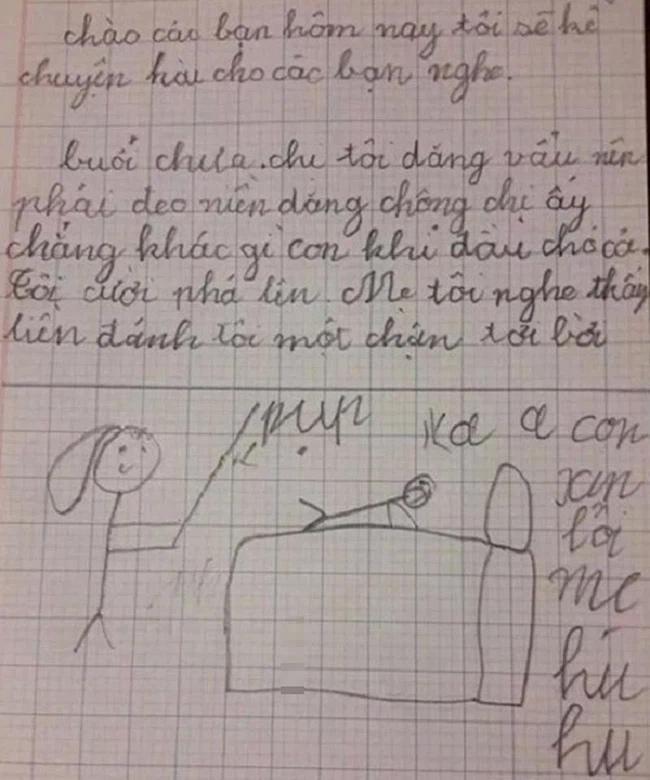 chào các bạn hôm nay tôi sẽ kể
chuyện hài cho các bạn nghe.
buổi chưa.chị tôi đăng vẩu nên
phải đeo niền dăng chông chị ấy
chẳng khác gì con khỉ đầu chó cả.
Tôi cười phá lên. Mẹ tôi nghe thấy
liền đánh tôi một chận tơi bời
pụp
Ka a con
xin
lỗi
mẹ
hú
hu